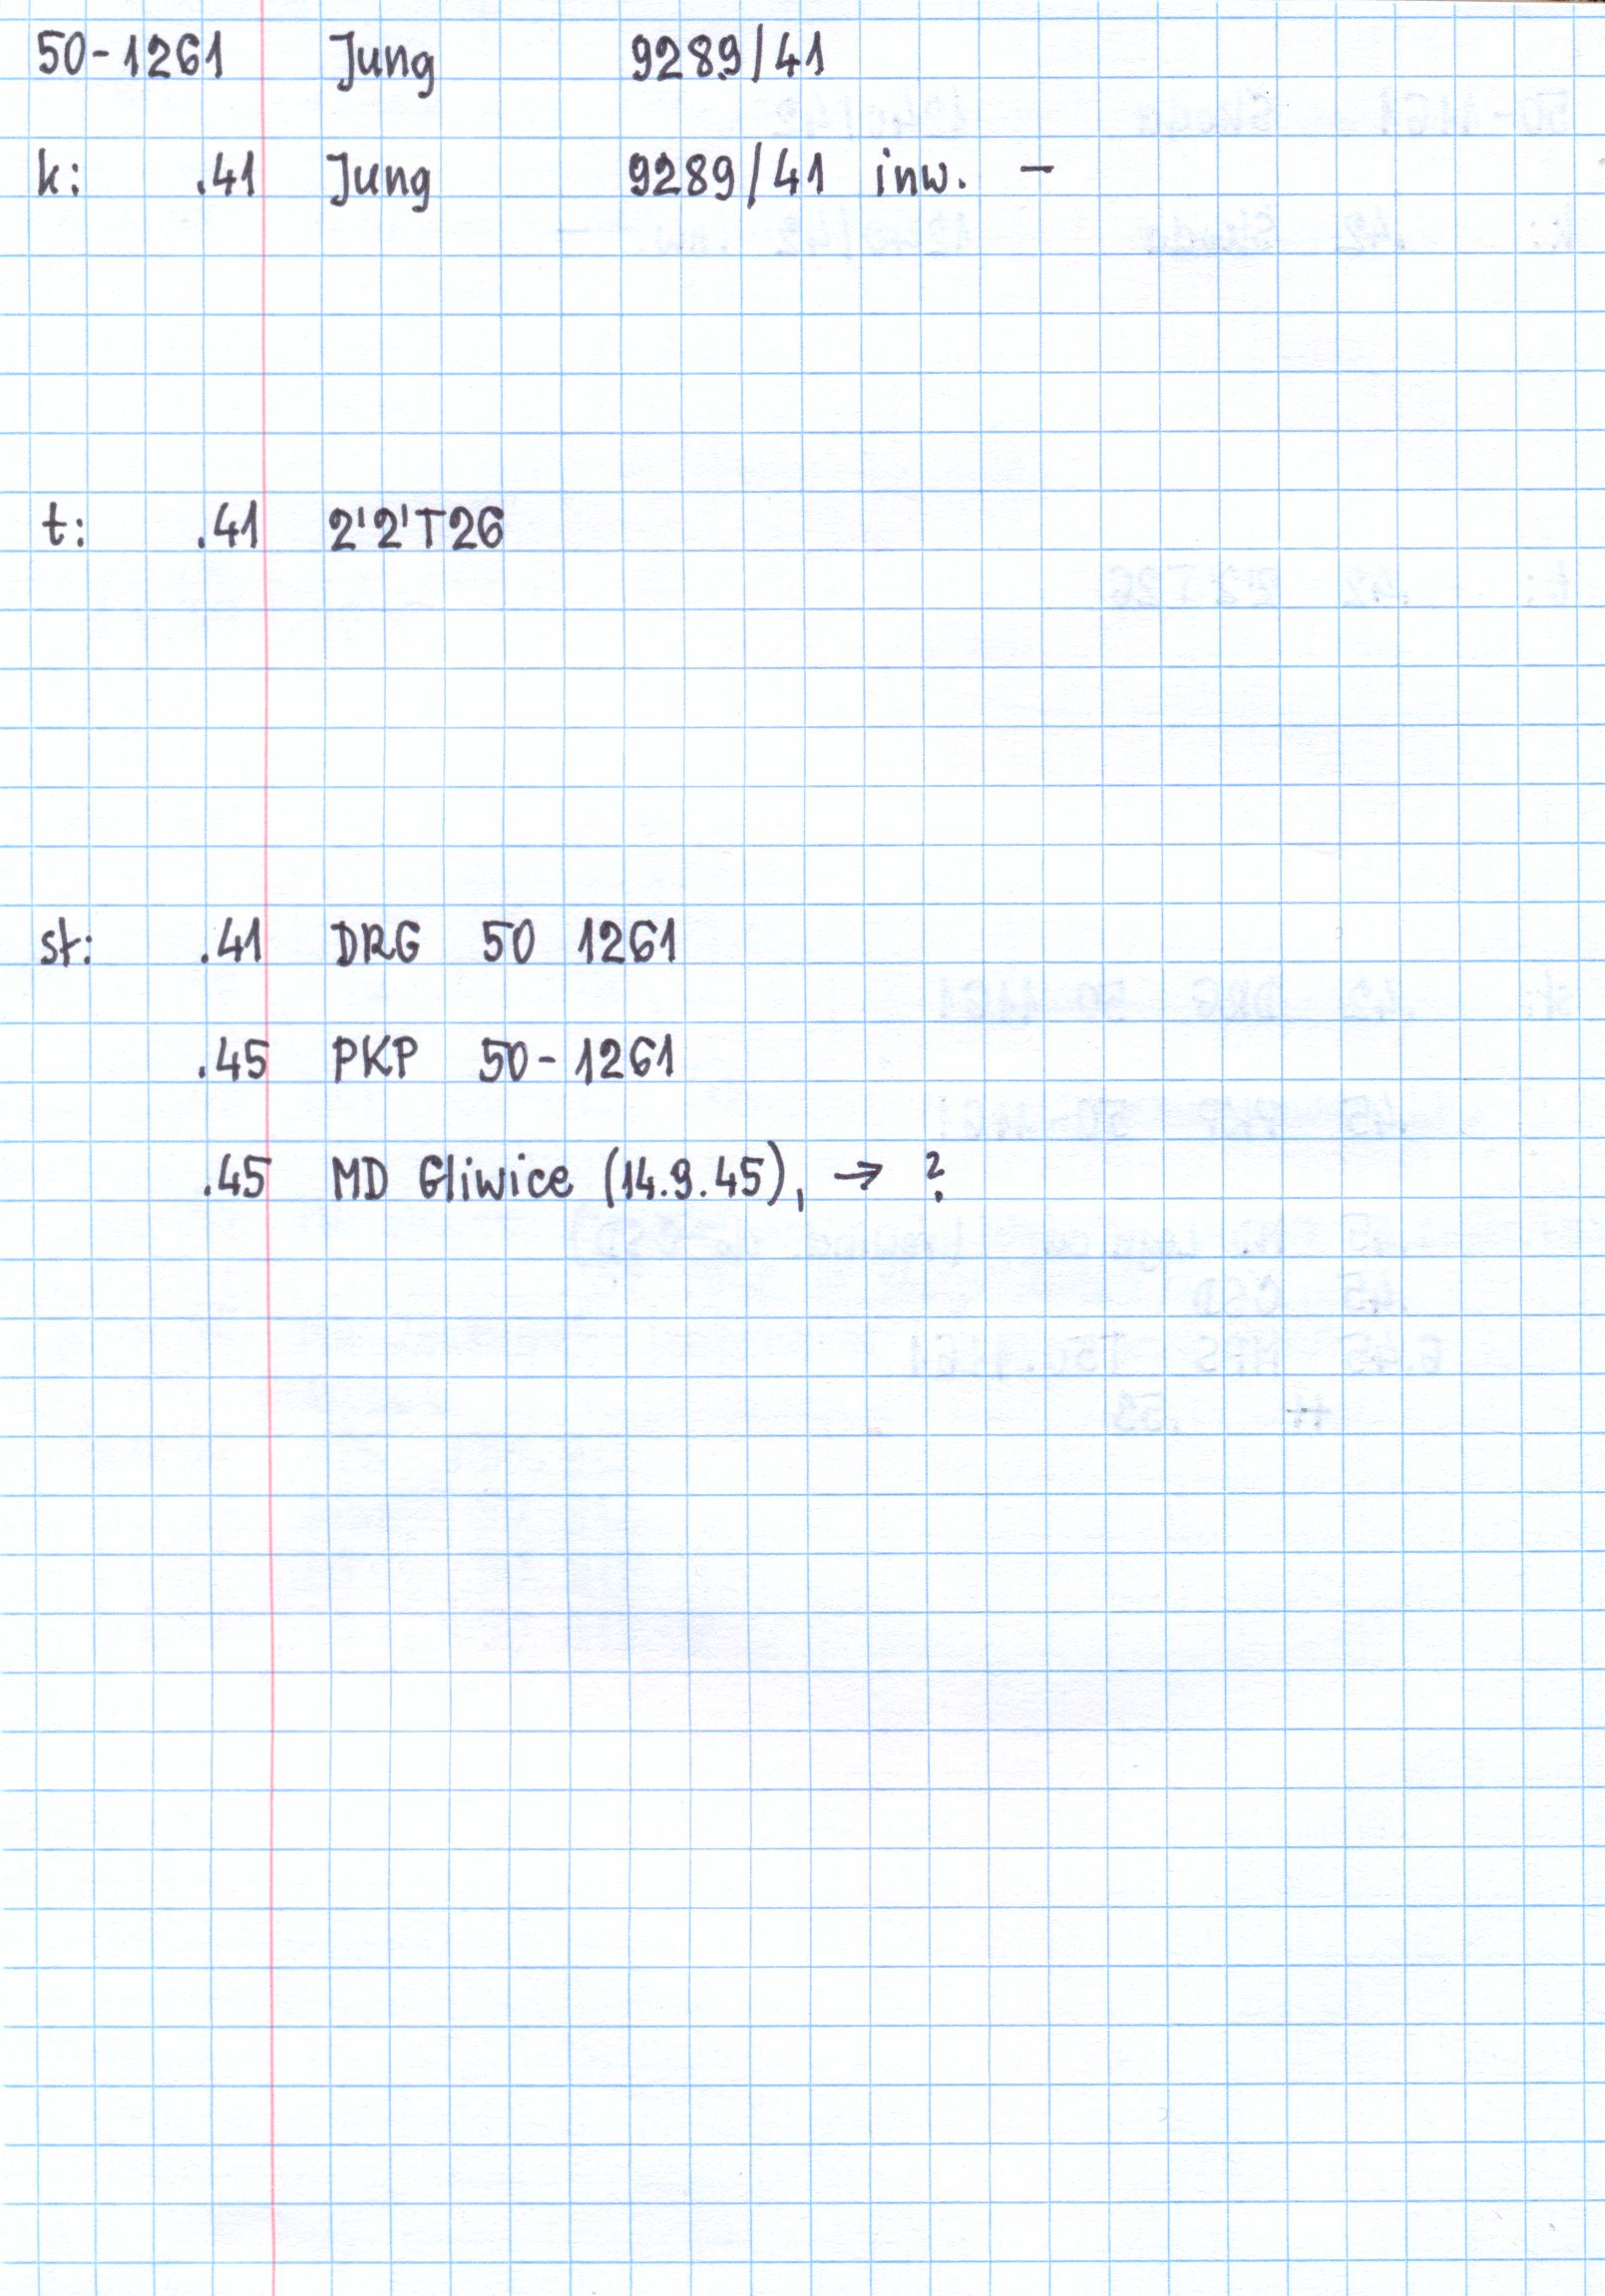 50-1261 Jung 9289/41
k: .41 Jung 9289/41 inw. –
t: .41 2'2'T26
st: .41 DRG 50 1261
.45 PKP 50-1261
.45 MD Gliwice (14.9.45), → ?